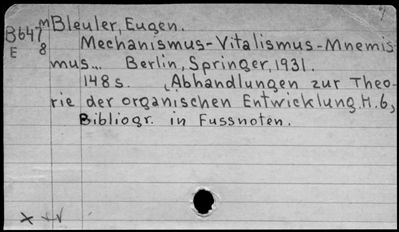 B647m Bleuler, Eugen.
E 8 Mechanismus-Vitalismus-Mnemis
mus... Berlin, Springer, 1931.
148 s. (Abhandlungen zur Theo-
rie der organischen Entwicklung. H. 6,
Bibliogr. in Fussnoten.